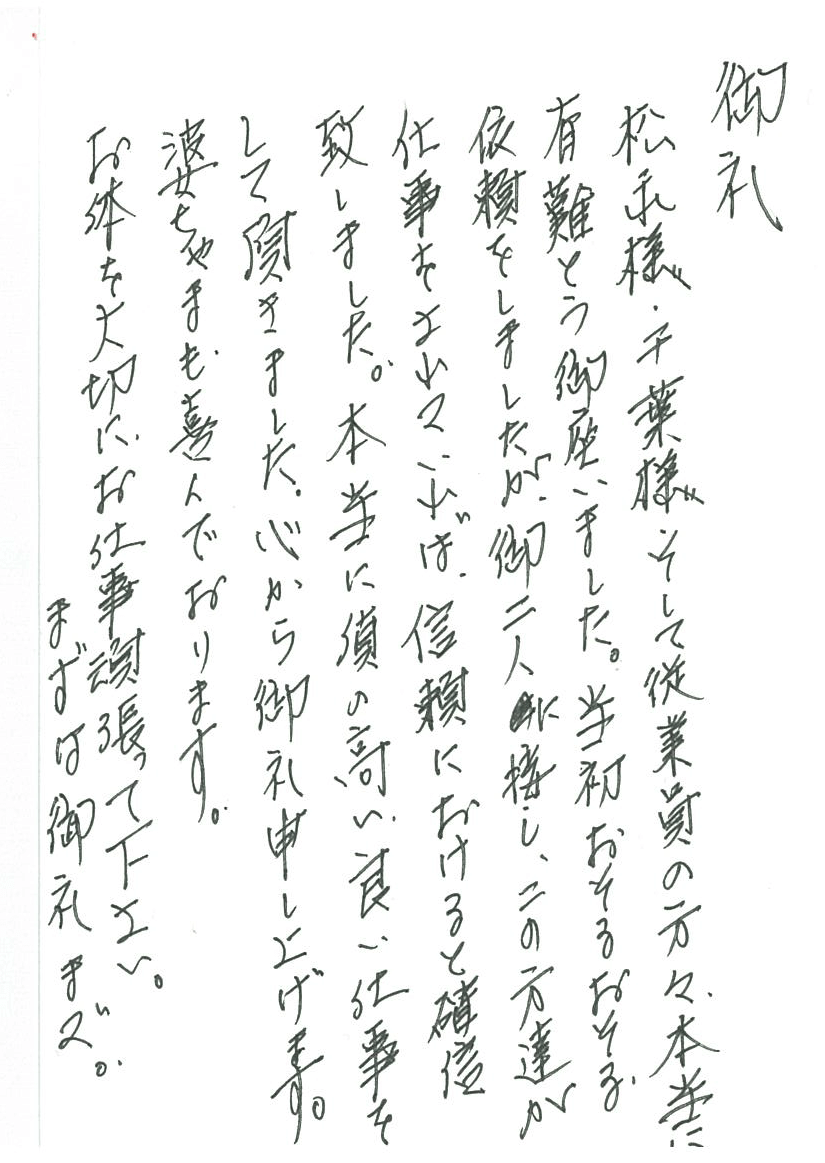 御礼
松永様・千葉様そして従業員の方々、本当に
有難とう御座いました。当初おそるおそる
依頼をしましたが、御二人に接し、この方達が
仕事をされていれば、信頼におけると確信
致しました。本当に質の高い、良い仕事を
して頂きました。心から御礼申し上げます。
婆ちゃまも喜んでおります。
お体を大切に、お仕事頑張って下さい。
まずは御礼まで。